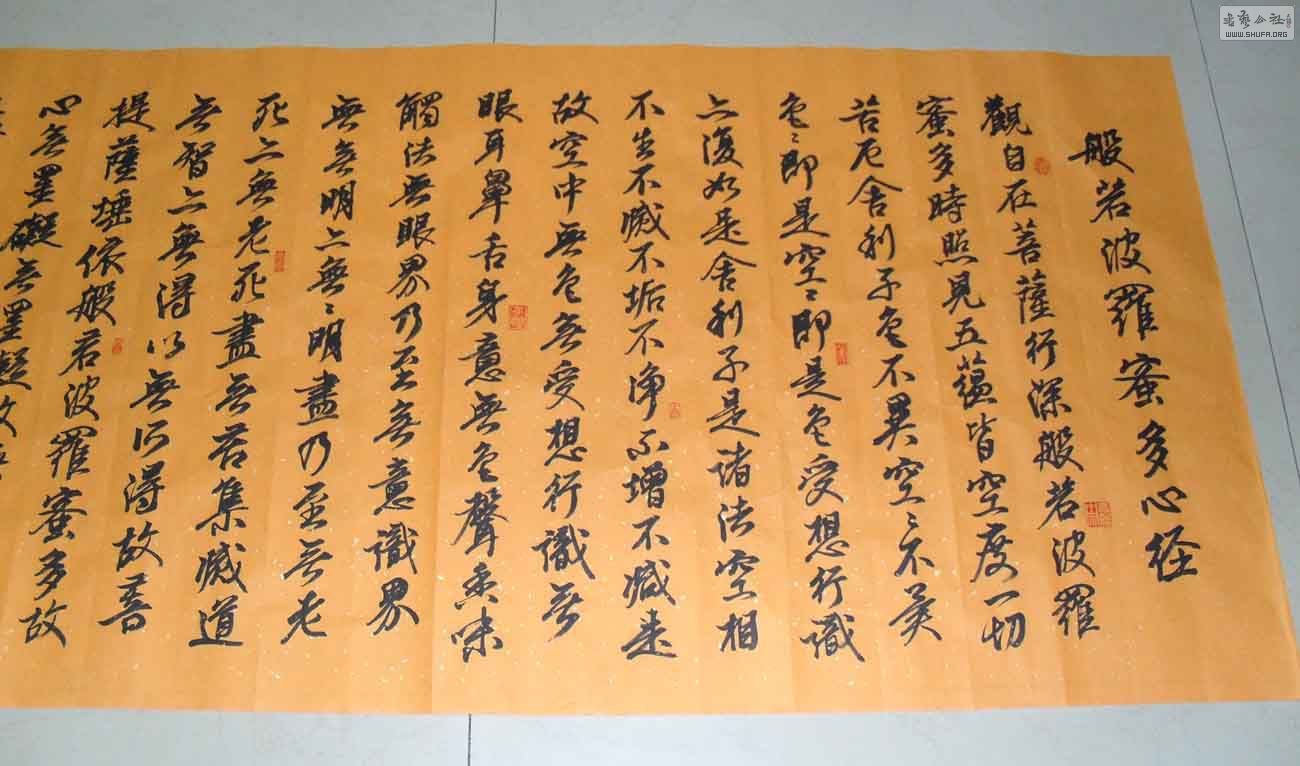 般若波羅蜜多心经
觀自在菩薩行深般若波羅
蜜多時照見五蘊皆空度一切
苦厄舍利子色不異空〻不異
色〻即是空〻即是色受想行識
亦復如是舍利子是諸法空相
不生不滅不垢不淨不增不減是
故空中無色无受想行識无
眼耳鼻舌身意無色聲香味
觸法無眼界乃至无意識界
無无明亦無〻明盡乃至无老
死亦無老死盡无苦集滅道
无智亦無得以無所得故菩
提薩埵依般若波羅蜜多故
心无罣礙无罣礙故
書藝公社
WWW.SHUFA.ORG